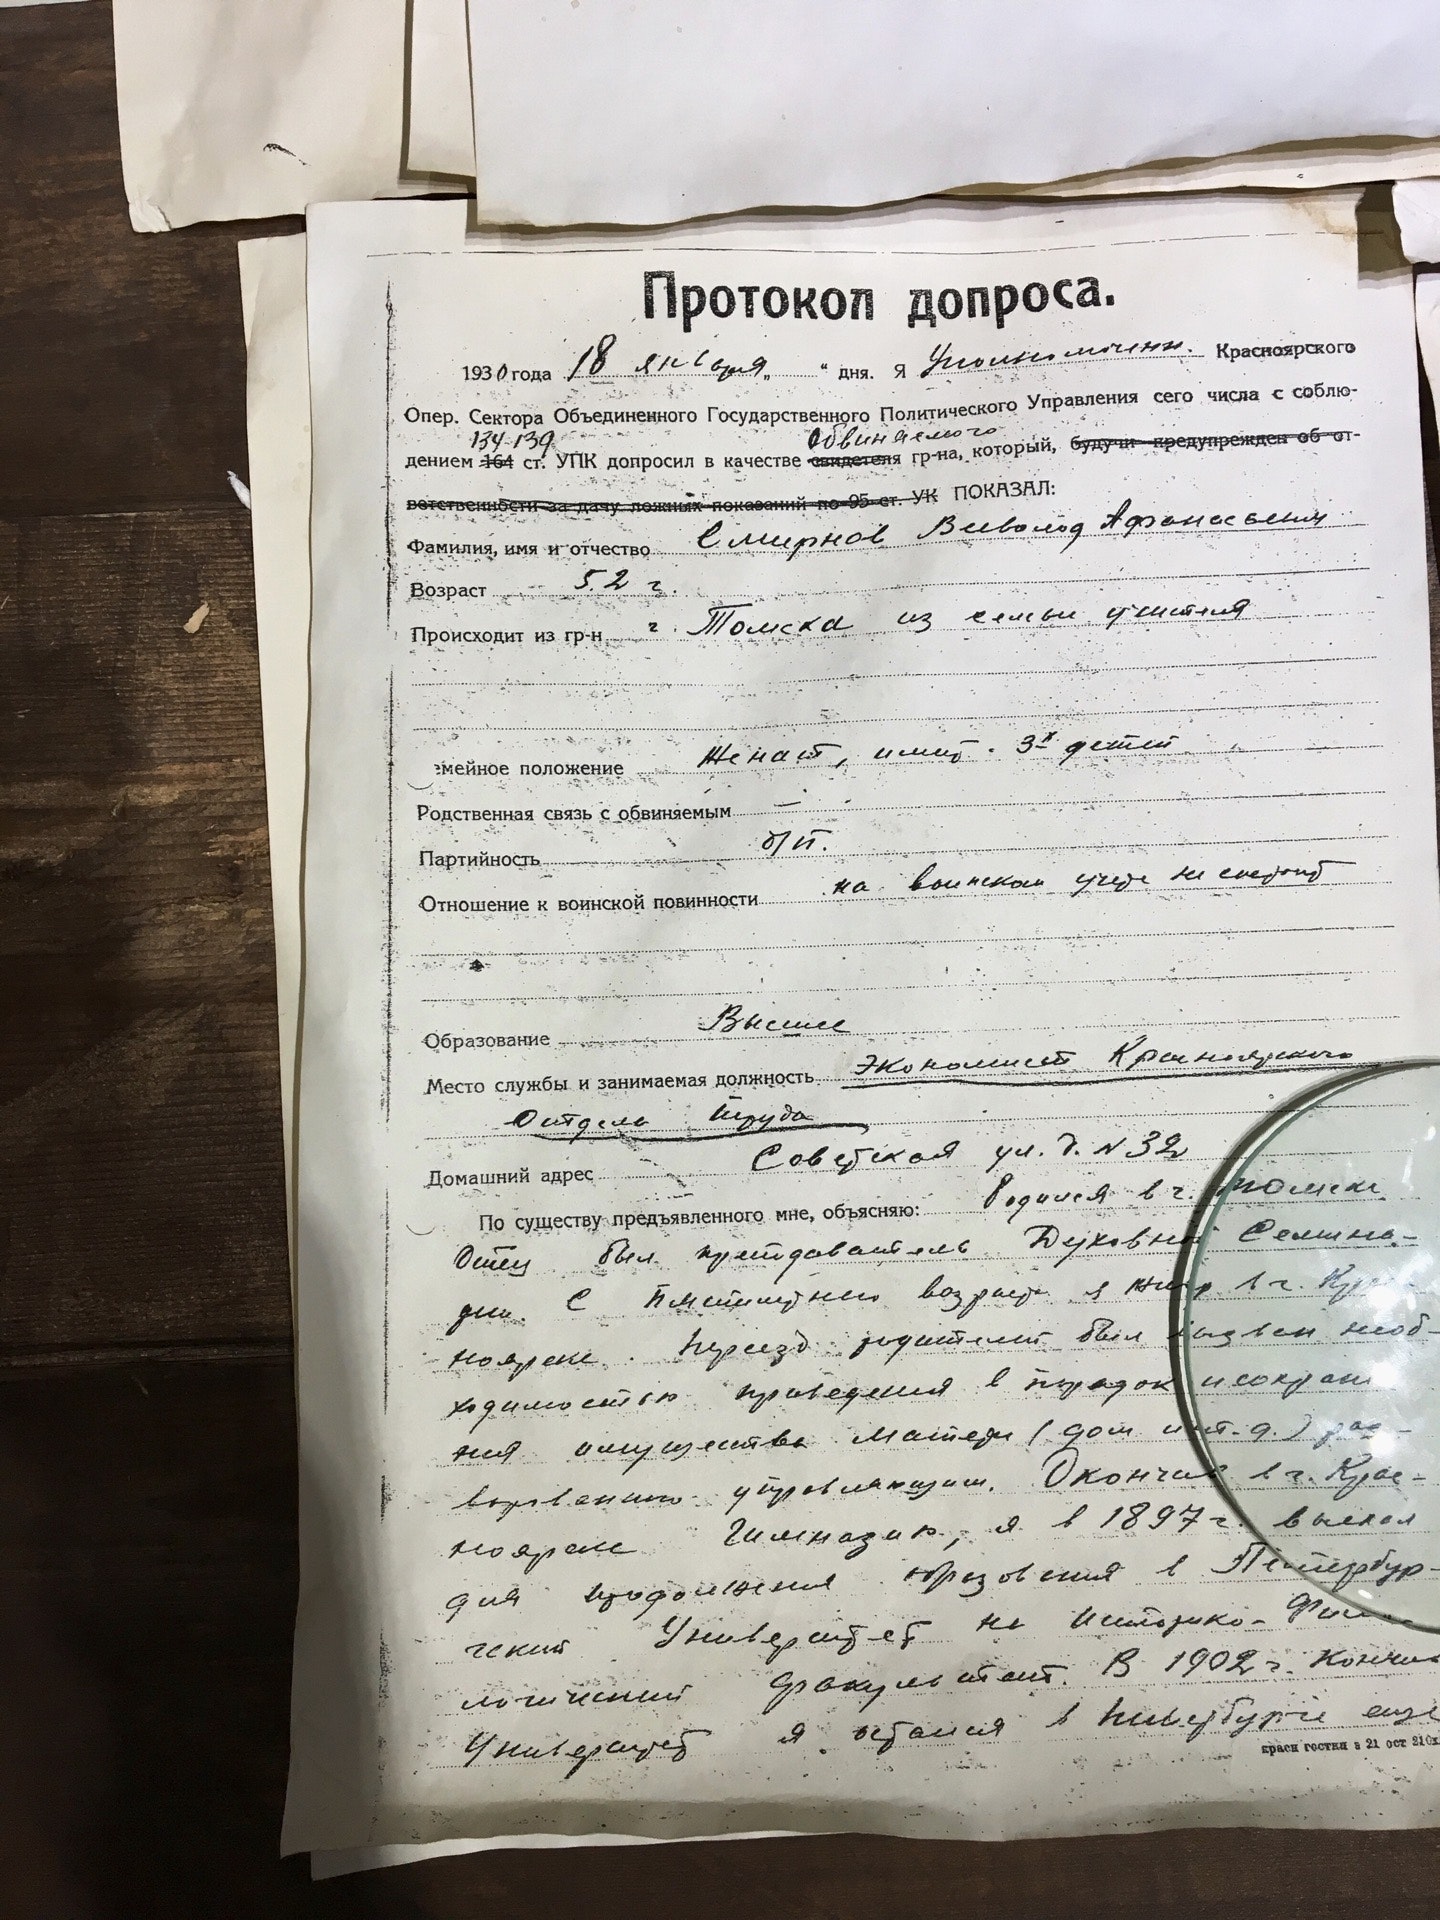 Протокол допроса.
1930 года 18 января „ “ дня. Я Уполномоченн. Красноярского
Опер. Сектора Объединенного Государственного Политического Управления сего числа с соблю-
134-139 Обвиняемого
дением 164 ст. УПК допросил в качестве свидетеля гр-на, который, будучи предупрежден об от-
ветственности за дачу ложных показаний по 95 ст. УК ПОКАЗАЛ:
Фамилия, имя и отчество Смирнов Всеволод Афанасьевич
Возраст 52 г.
Происходит из гр-н г. Томска из семьи учителя
емейное положение Женат, имеет 3х детей
Родственная связь с обвиняемым —
Партийность б/п.
Отношение к воинской повинности на воинском учете не состоит
Образование Высшее
Место службы и занимаемая должность Экономист Красноярского
Отдела Труда
Домашний адрес Советская ул. д. N 32
По существу предъявленного мне, объясняю: Родился в г. Томске
Отец был преподаватель Духовной Семина-
рии. С возраста я живу в г. Крас-
ноярске. Переезд родителей был вызван необ-
ходимостью приведения в порядок и сохране-
ния имущества матери (дом и т. д.) раз-
управляющим. Окончив в г. Крас-
ноярске Гимназию, я в 1897 г. выехал
для продолжения образования в Петербур-
гский Университет на Историко-Фило-
логический факультет. В 1902 г. кончив
Университет я остался в Петербурге еще
красн гостип з 21 ост 210х